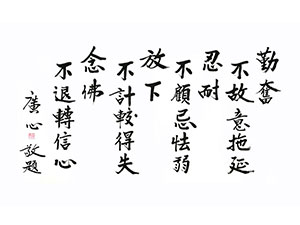 勤奮
不故意拖延
忍耐
不顧忌怯弱
放下
不計較得失
念佛
不退轉信心
廣心敬題